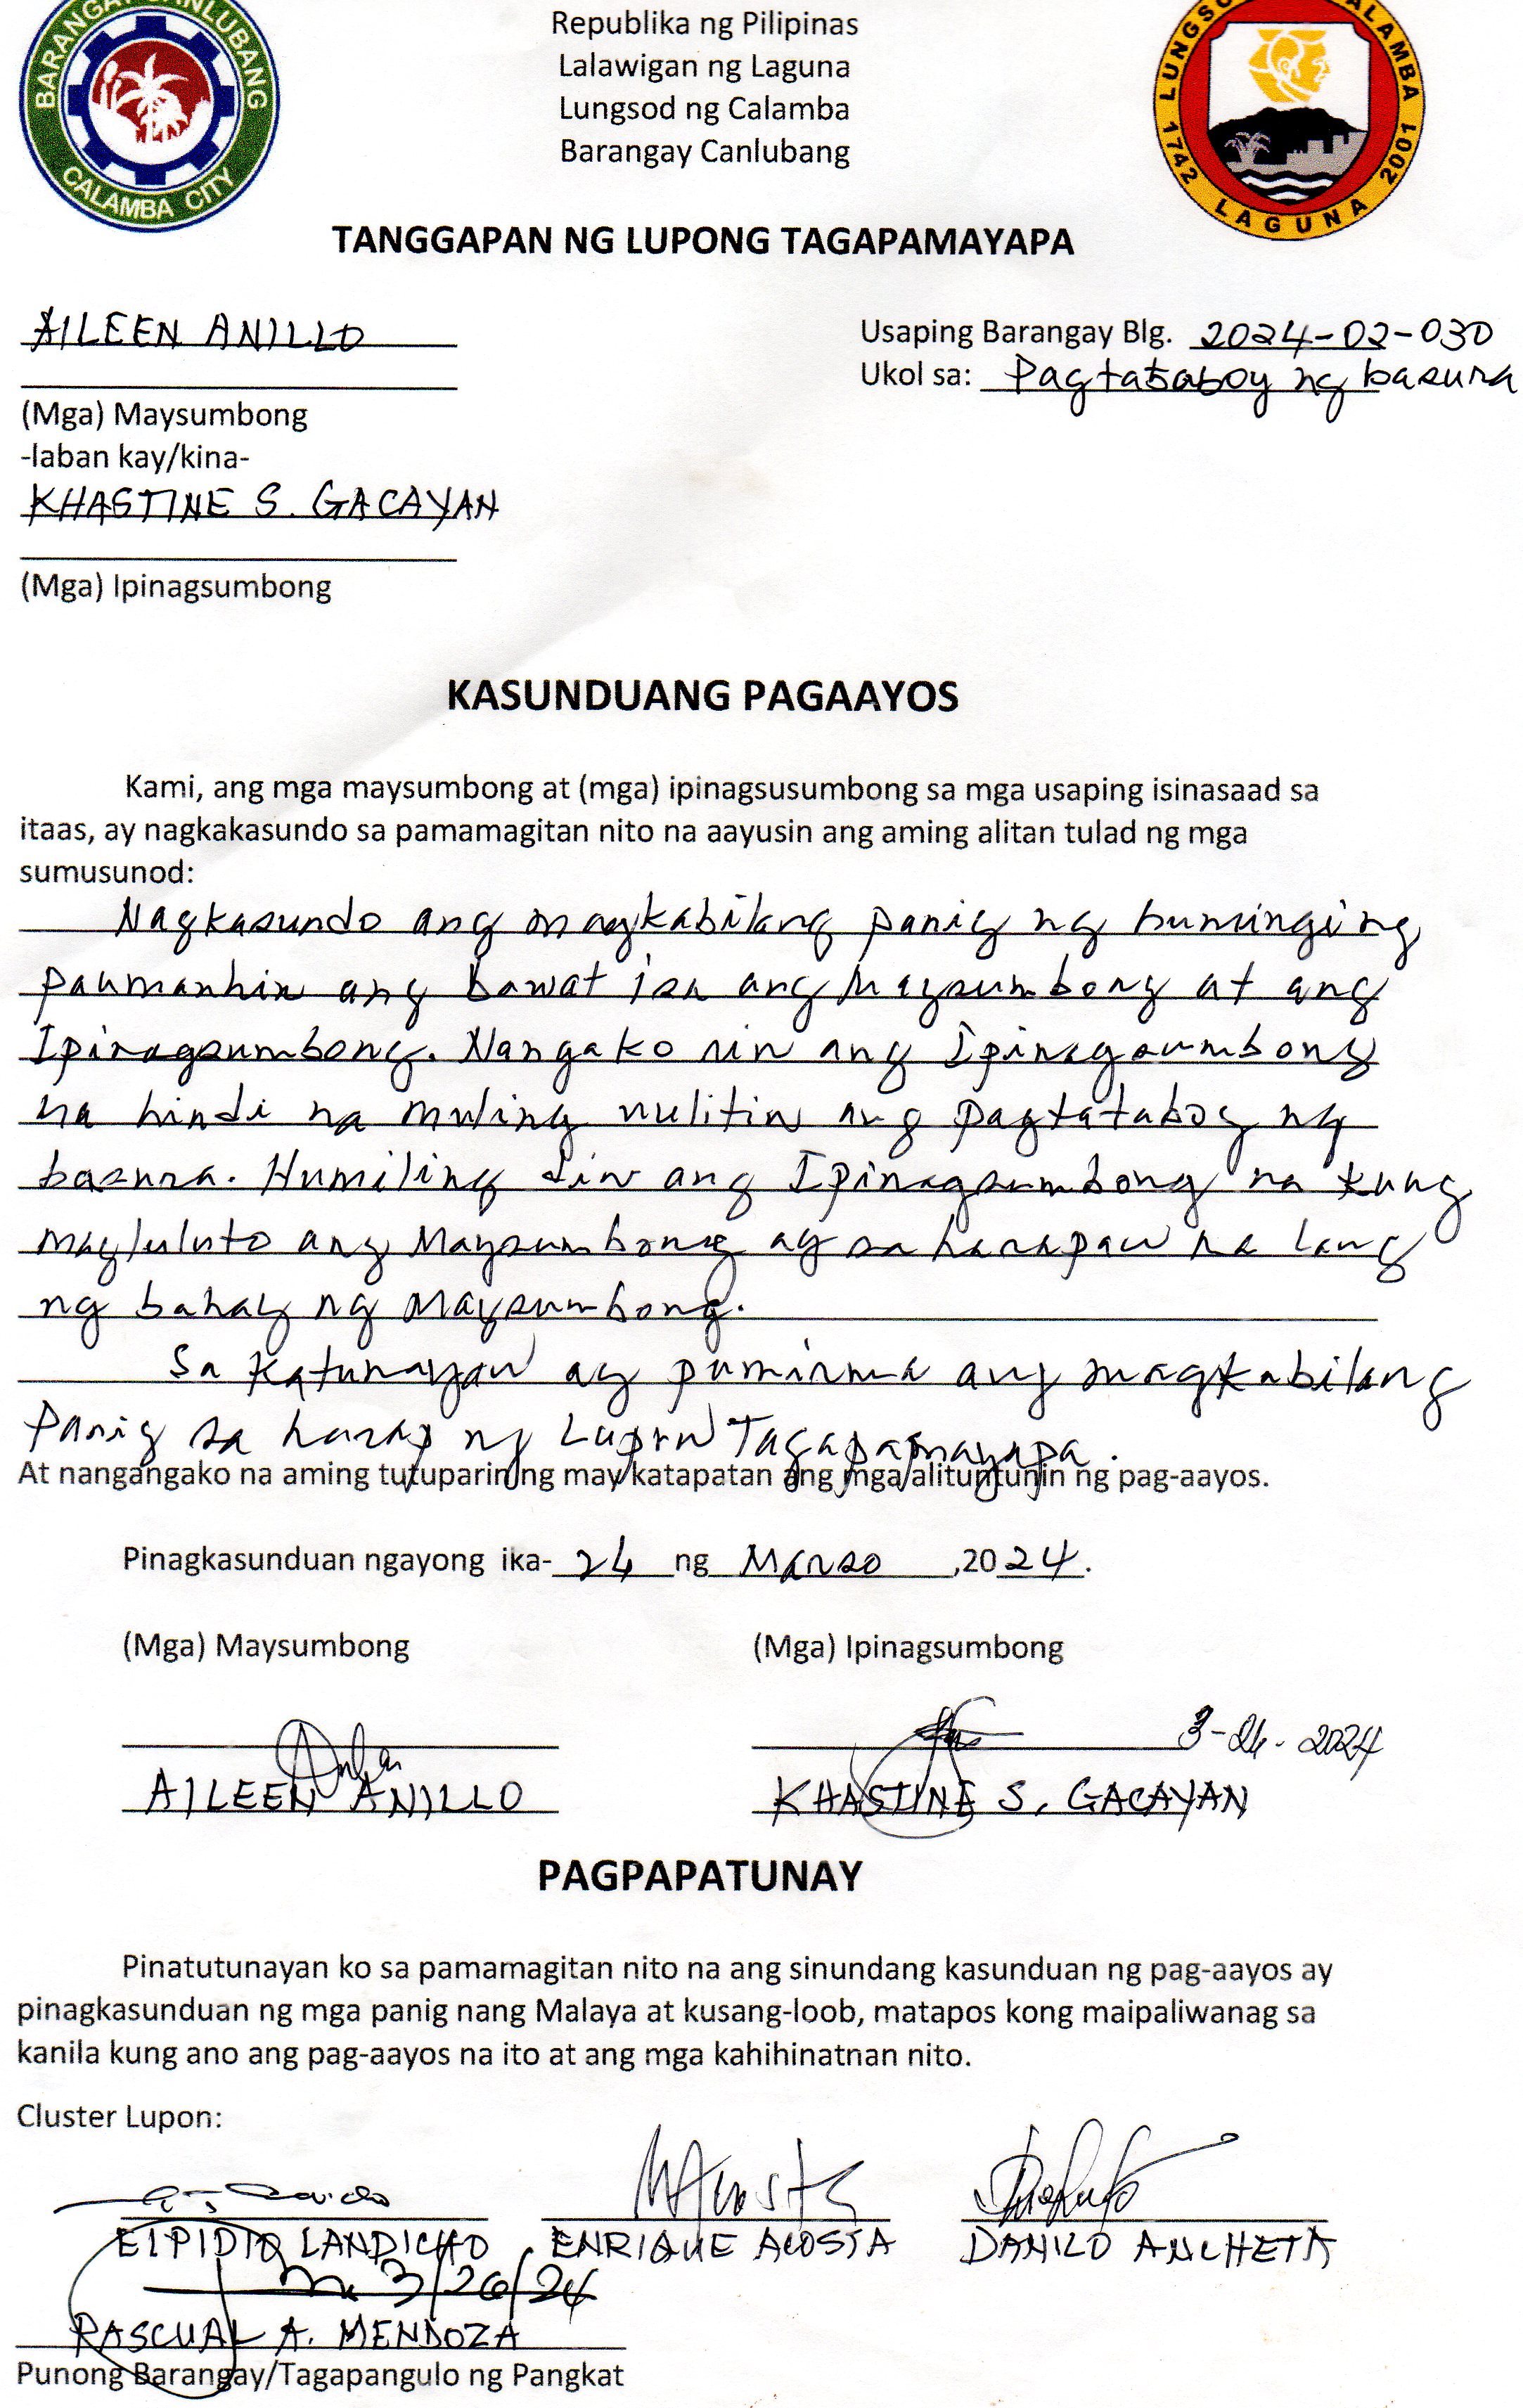 BARANGAY CANLUBANG
CALAMBA CITY
Republika ng Pilipinas
Lalawigan ng Laguna
Lungsod ng Calamba
Barangay Canlubang
LUNGSOD CALAMBA
1742 LAGUNA 2001
TANGGAPAN NG LUPONG TAGAPAMAYAPA
AILEEN ANILLO
Usaping Barangay Blg. 2024-02-030
Ukol sa: Pagtataboy ng basura
(Mga) Maysumbong
-laban kay/kina-
KHASTINE S. GACAYAN
(Mga) Ipinagsumbong
KASUNDUANG PAGAAYOS
Kami, ang mga maysumbong at (mga) ipinagsusumbong sa mga usaping isinasaad sa
itaas, ay nagkakasundo sa pamamagitan nito na aayusin ang aming alitan tulad ng mga
sumusunod:
Nagkasundo ang magkabilang panig ng humingi ng
paumanhin ang bawat isa ang Maysumbong at ang
Ipinagsumbong. Nangako rin ang Ipinagsumbong
na hindi na muling uulitin ang pagtataboy ng
basura. Humiling din ang Ipinagsumbong na kung
magluluto ang Maysumbong ay sa harapan na lang
ng bahay ng Maysumbong.
Sa katunayan ay pumirma ang magkabilang
Panig sa harap ng Lupon Tagapamayapa.
At nangangako na aming tutuparin ng may katapatan ang mga alituntunin ng pag-aayos.
Pinagkasunduan ngayong ika- 26 ng Marso ,20 24.
(Mga) Maysumbong (Mga) Ipinagsumbong
3-26-2024
AILEEN ANILLO KHASTINE S. GACAYAN
PAGPAPATUNAY
Pinatutunayan ko sa pamamagitan nito na ang sinundang kasunduan ng pag-aayos ay
pinagkasunduan ng mga panig nang Malaya at kusang-loob, matapos kong maipaliwanag sa
kanila kung ano ang pag-aayos na ito at ang mga kahihinatnan nito.
Cluster Lupon:
ELPIDIO LANDICHO ENRIQUE ACOSTA DANILO ANCHETA
3/26/24
PASCUAL A. MENDOZA
Punong Barangay/Tagapangulo ng Pangkat